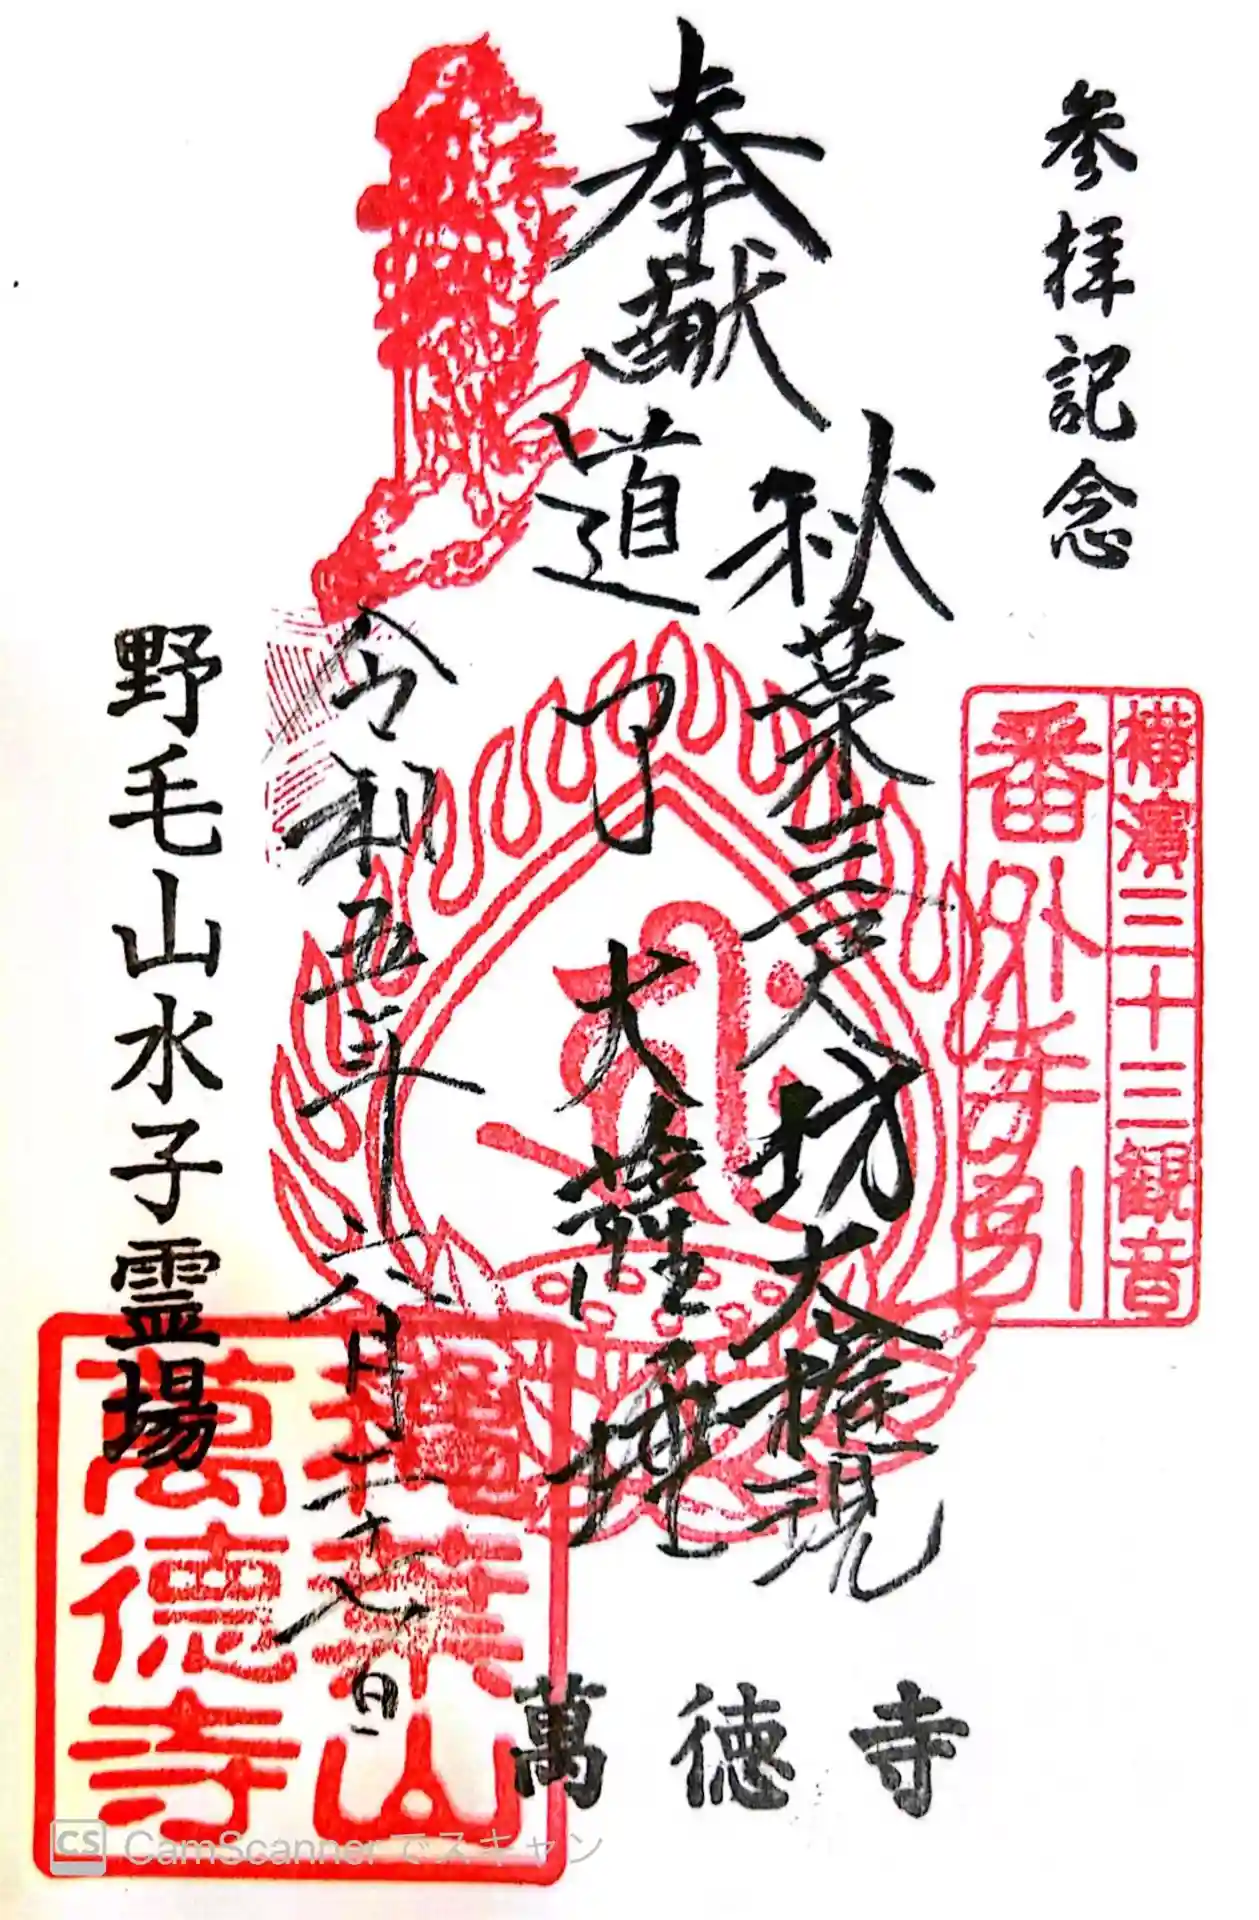 参拝記念
横濱三十三観音
番外
奉献
秋葉三尺坊大権現
道了大薩埵
令和五年六月二十七日
野毛山水子霊場
葉山
萬徳寺
萬徳寺
CS CamScannerでスキャン